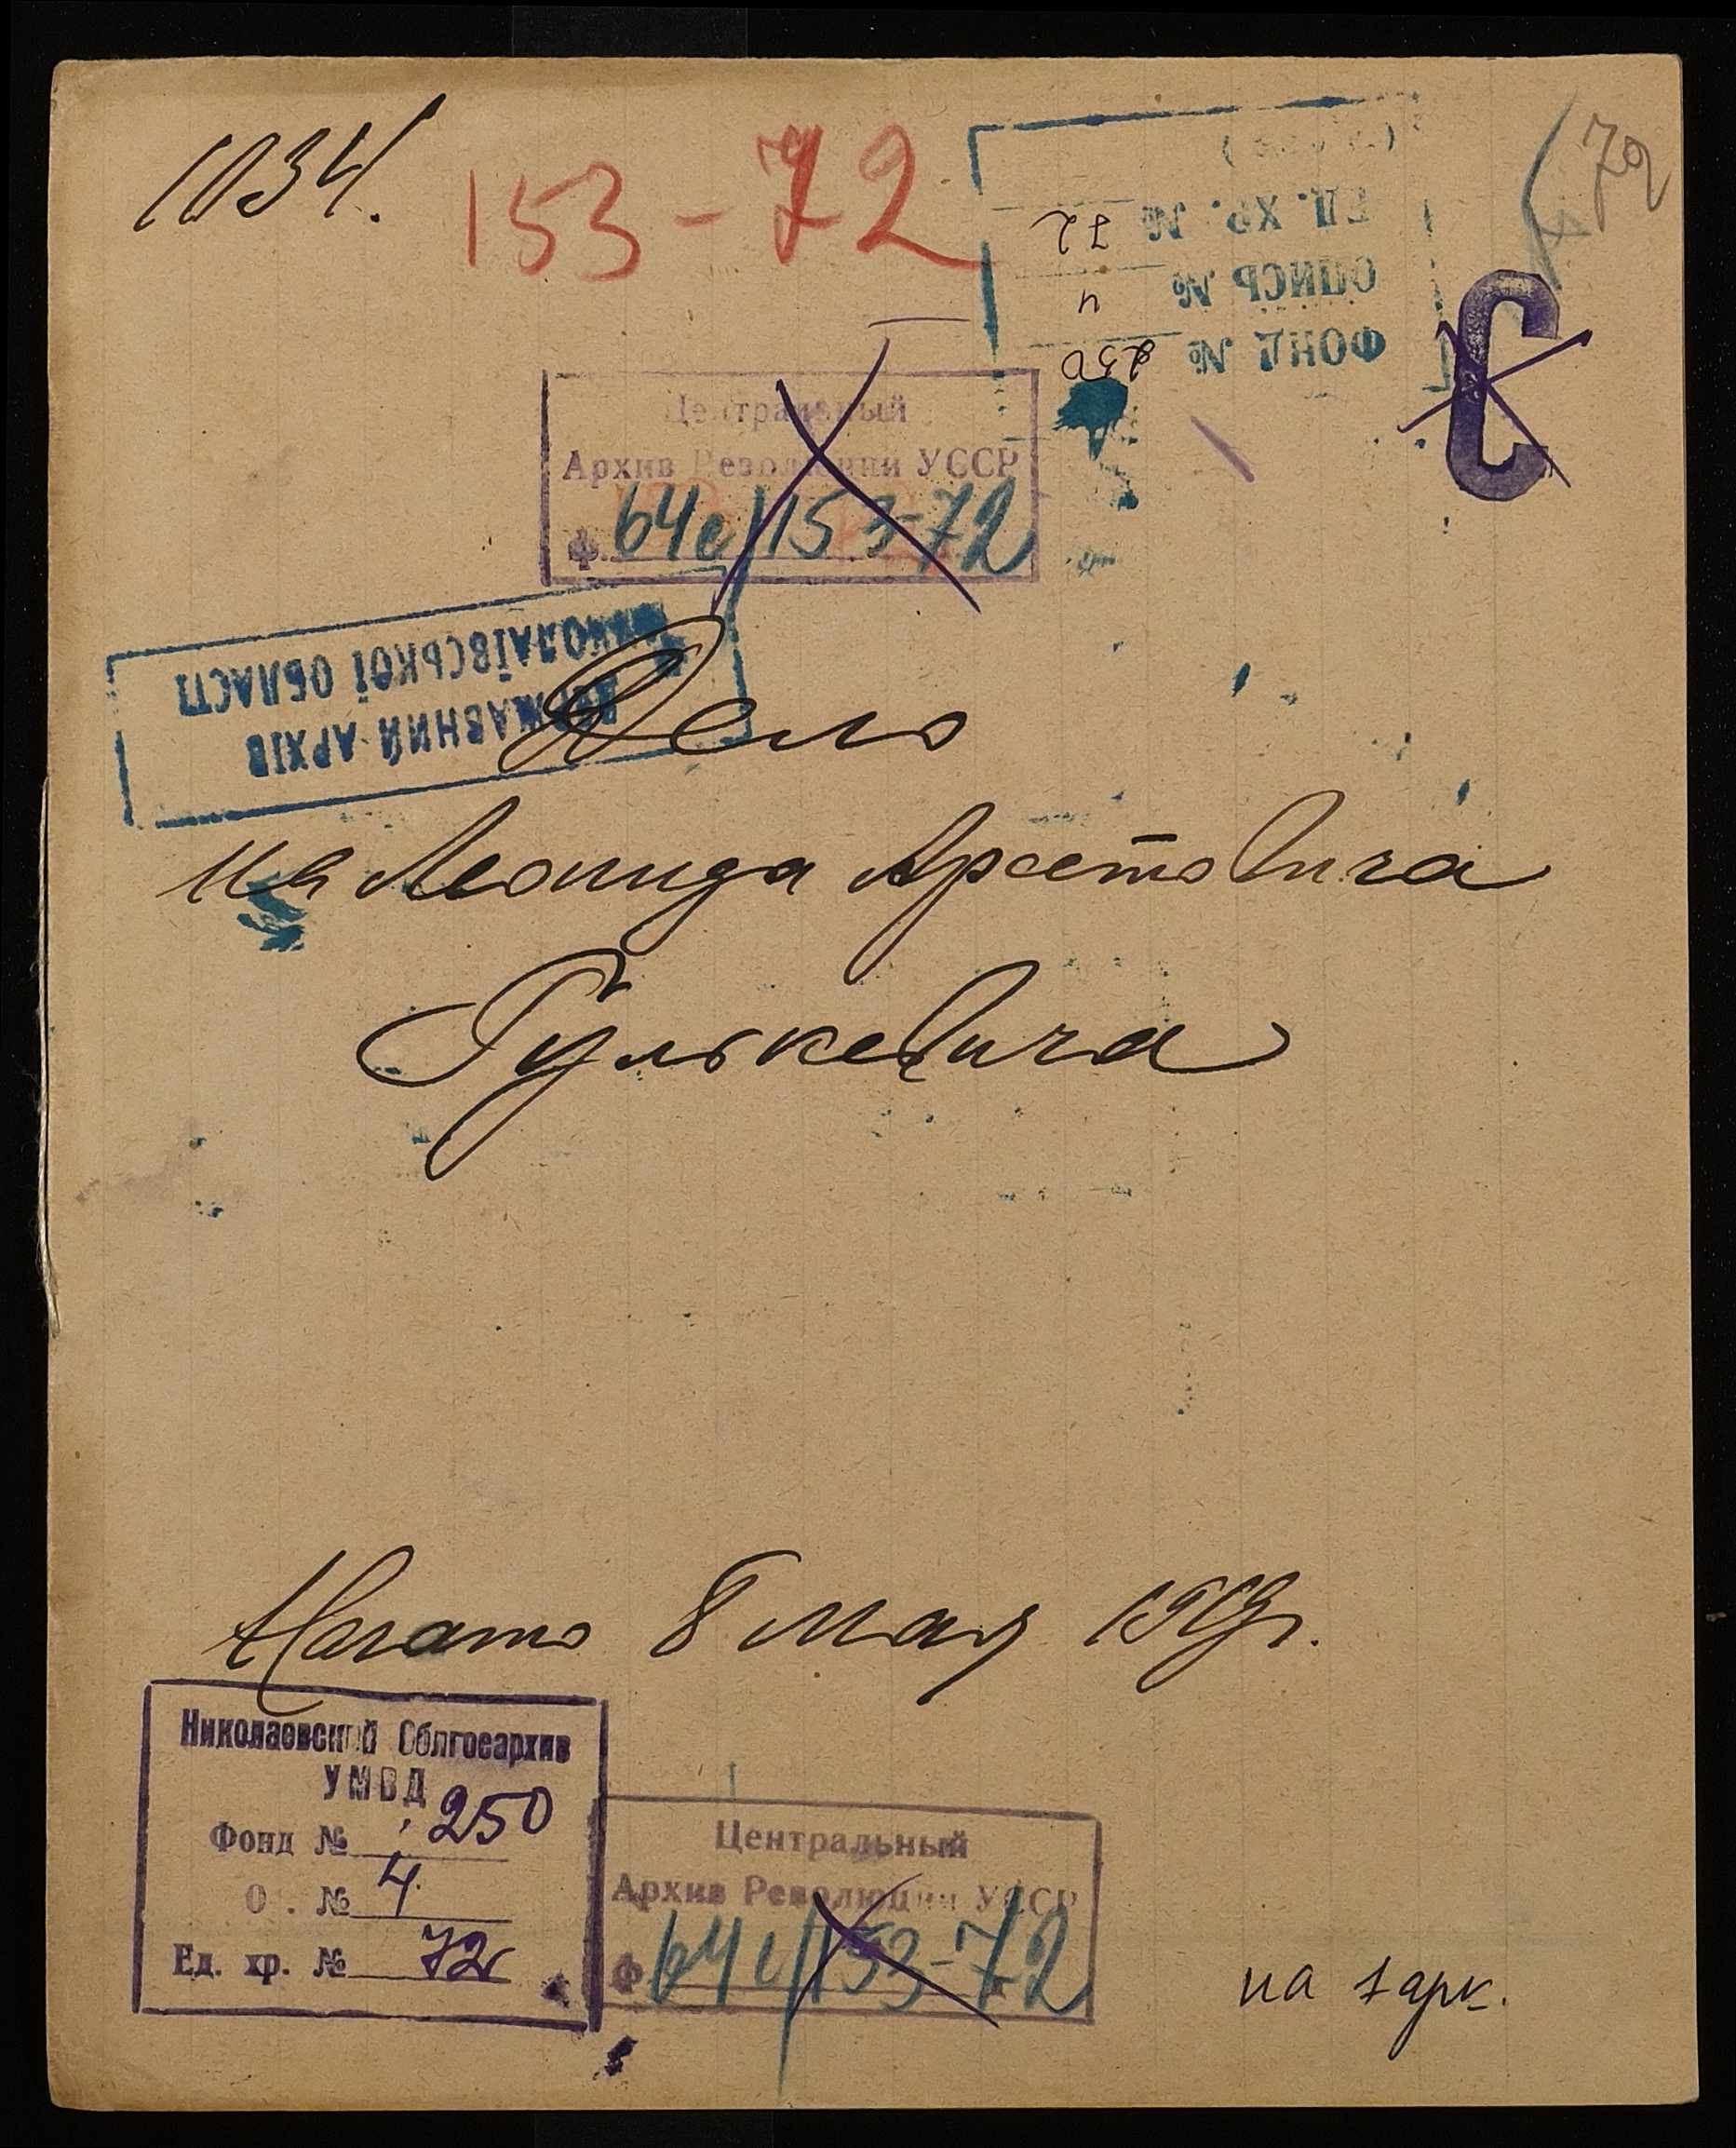 1034.
153-72
72
ФОНД № 250
ОПИСЬ № 4
ЕД. ХР. № 72
С
Центральный
Архив Революции УССР
ф. 64с/153-72
ДЕРЖАВНИЙ АРХІВ
МИКОЛАЇВСЬКОЇ ОБЛАСТІ
Дело
на Леонида
Гулькевича
Начато 8 мая 1919г.
Николаевский Облгосархив
УМВД
Фонд № 250
О . № 4
Ед. хр. № 72
Центральный
Архив Революции УССР
Ф 64с/153-72
на 7 арк.